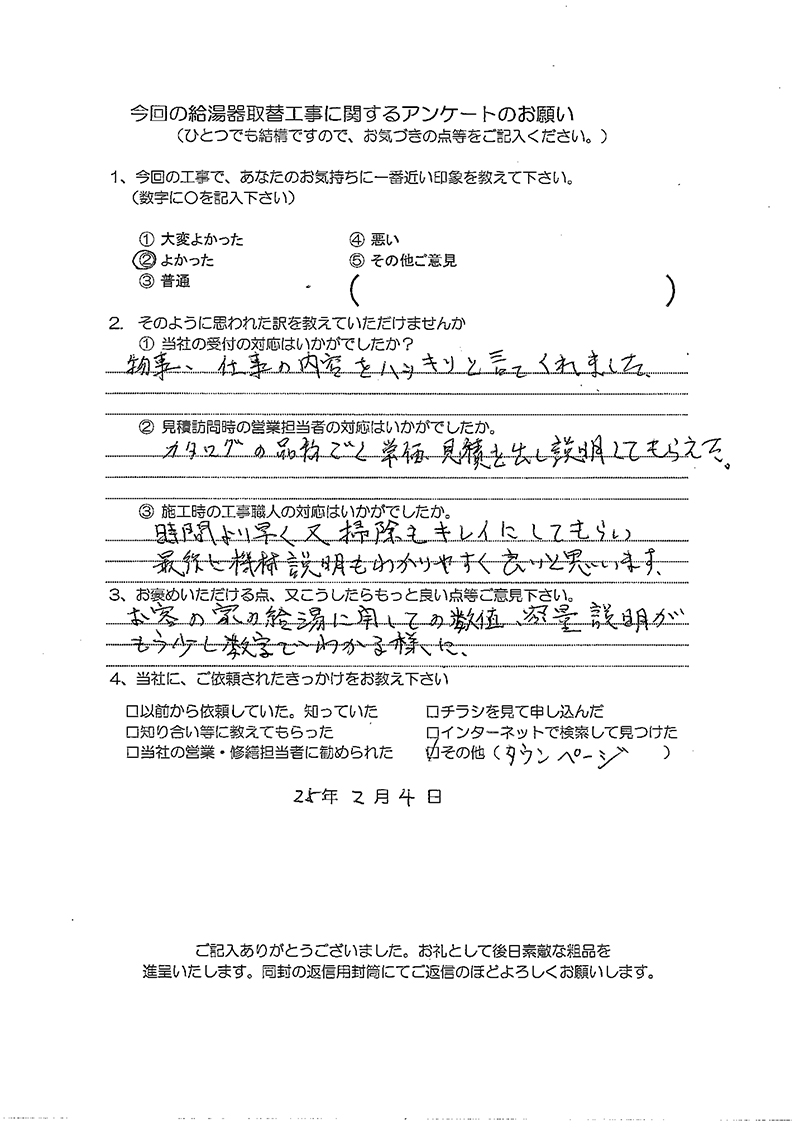 今回の給湯器取替工事に関するアンケートのお願い
（ひとつでも結構ですので、お気づきの点等をご記入ください。）
1、今回の工事で、あなたのお気持ちに一番近い印象を教えて下さい。
（数字に〇を記入下さい）
① 大変よかった ④ 悪い
② よかった ⑤ その他ご意見
③ 普通 ( )
2. そのように思われた訳を教えていただけませんか
① 当社の受付の対応はいかがでしたか？
物事、仕事の内容をハッキリと言てくれました、
② 見積訪問時の営業担当者の対応はいかがでしたか。
カタログの品称ごと単価、見積を出し説明してもらえた。
③ 施工時の工事職人の対応はいかがでしたか。
時間より早く又掃除もキレイにしてもらい
最終と機械説明もわかりやすく良いと思います、
3、お褒めいただける点、又こうしたらもっと良い点等ご意見下さい。
お客の家の給湯に関しての数値、容量説明が
もう少し数字でわかる様に、
4、当社に、ご依頼されたきっかけをお教え下さい
□以前から依頼していた。知っていた □チラシを見て申し込んだ
□知り合い等に教えてもらった □インターネットで検索して見つけた
□当社の営業・修繕担当者に勧められた ☑その他（タウンページ ）
25年 2月 4日
ご記入ありがとうございました。お礼として後日素敵な粗品を
進呈いたします。同封の返信用封筒にてご返信のほどよろしくお願いします。